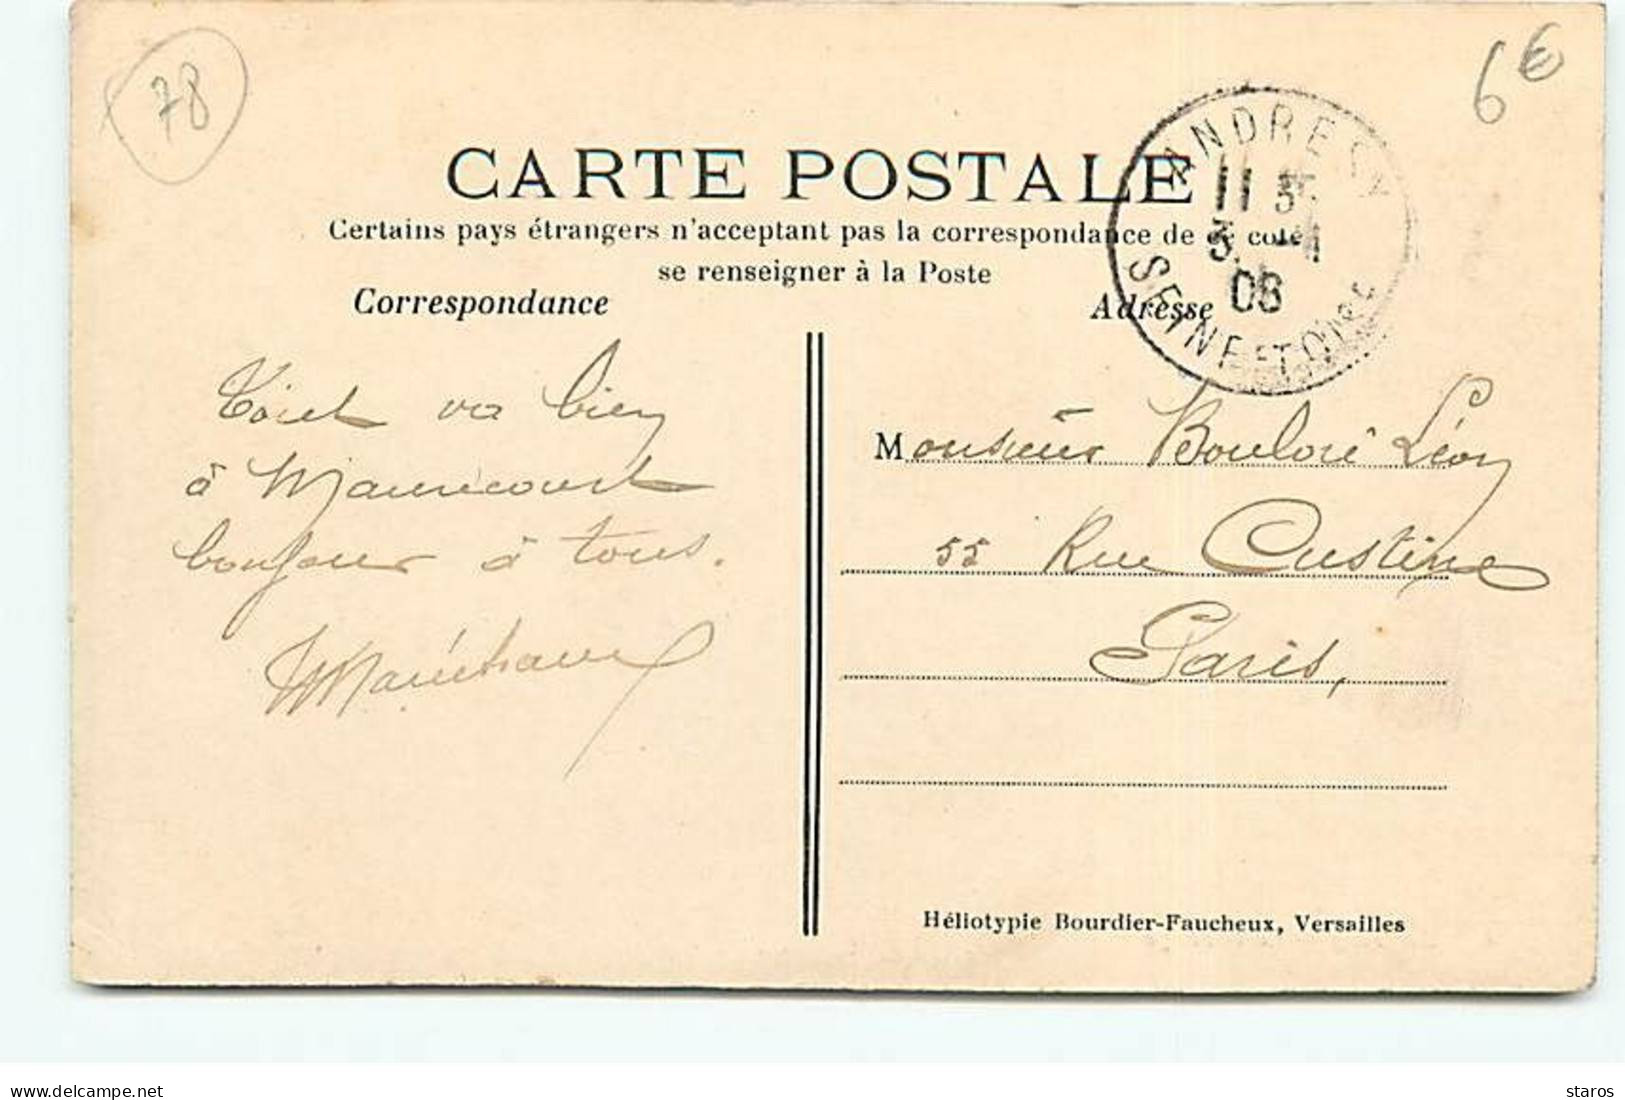 78
6€
CARTE POSTALE
Certains pays étrangers n'acceptant pas la correspondance de ce coté,
se renseigner à la Poste
Correspondance
Adresse
ANDRESY
11
5
08
SEINE-ET-OISE
va bien
à Maurecourt
bonjour à tous.
Monsieur Bouloré Léon
55 Rue Custine
Paris,
Héliotypie Bourdier-Faucheux, Versailles
delcampe.net
staros